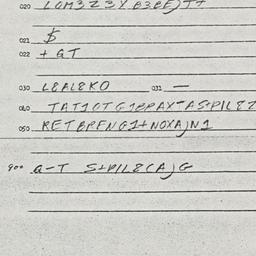 020 LOM3Z3YB3BE)TT
021 $
022 + GT
030 L8AL8KO 031 —
040 TAT1OTG1BPAX-AS+PIL8Z
050 RETBPFNG1+NOXA)N1
900 Q-T S+PIL8(A)G